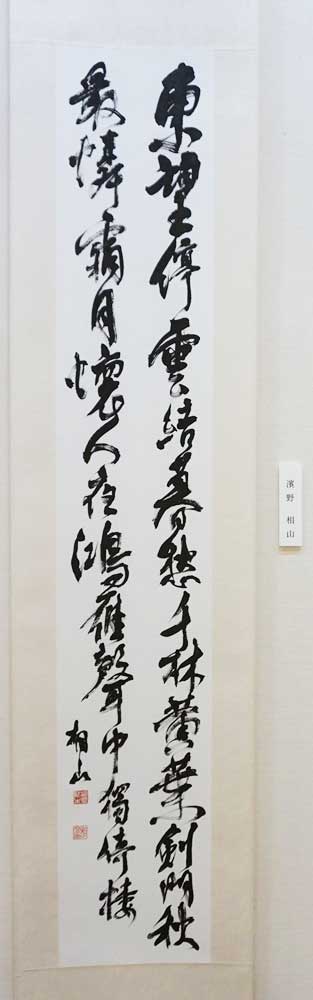 東望停雲結暮愁千林黄葉剣門秋
最憐霜月懐人夜鴻雁聲中獨倚楼
相山
濱野 相山